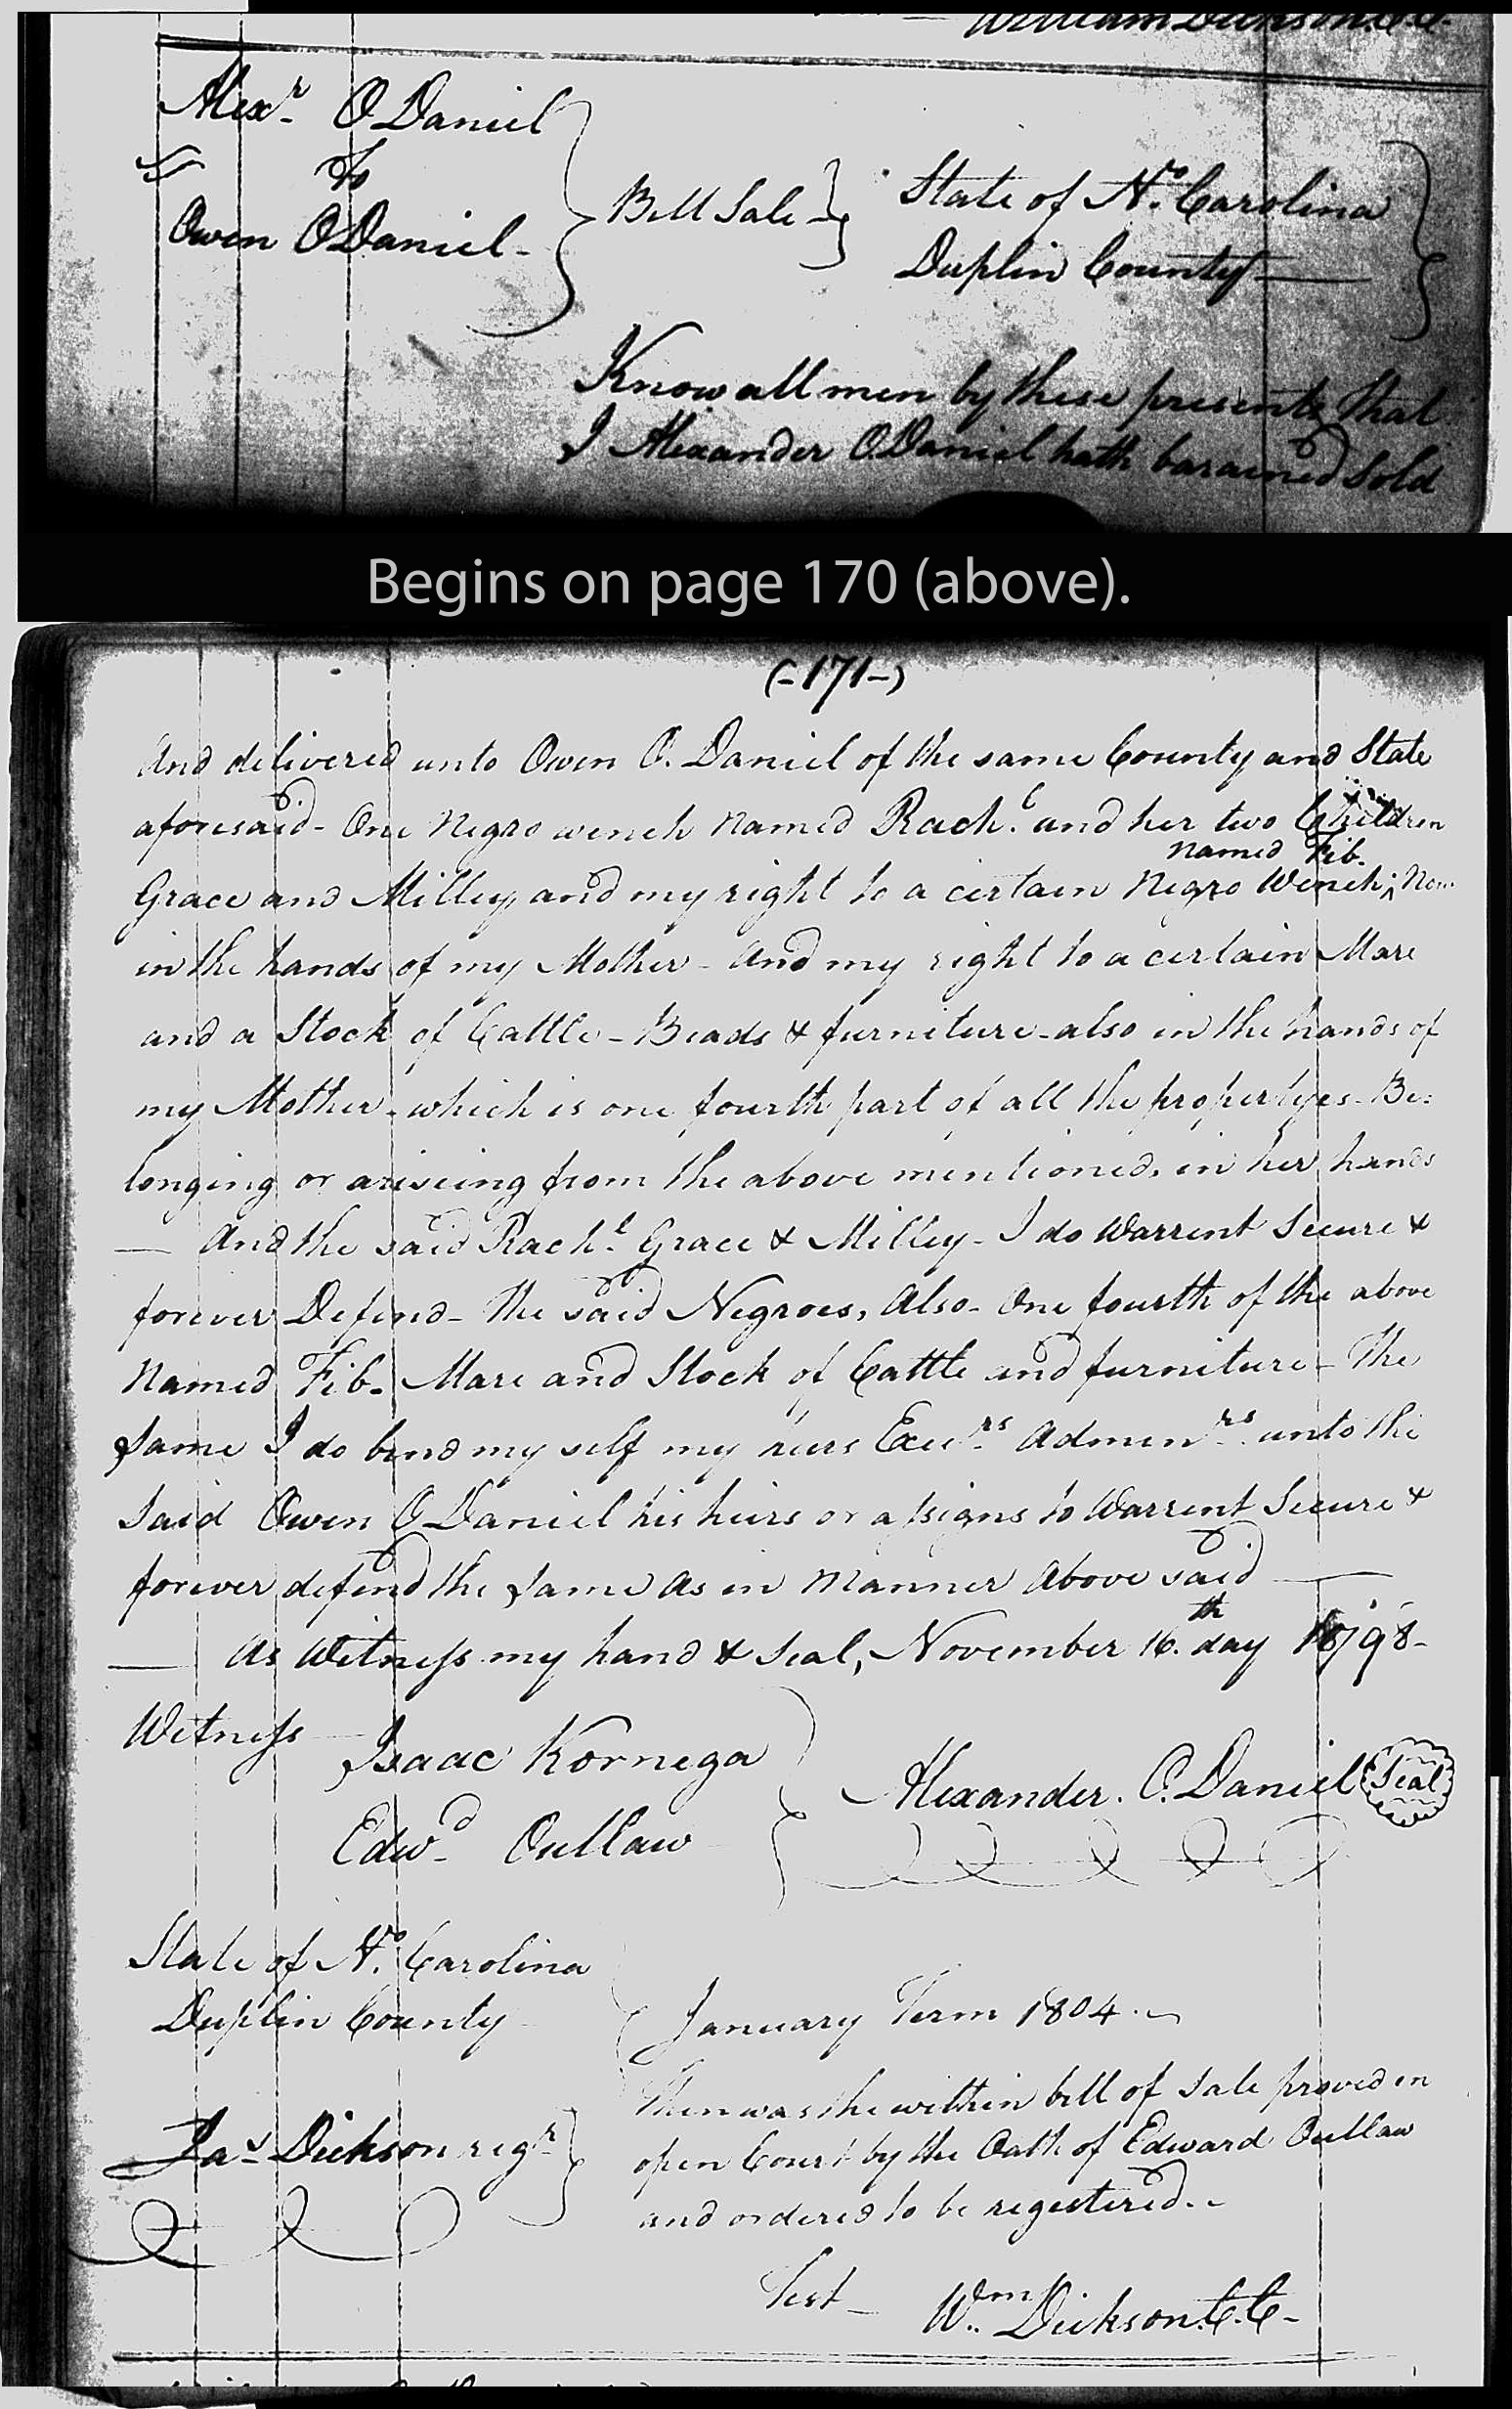 William Dickson C.C.
Alexr. O Daniel
To
Owen O Daniel-
Bill Sale-
State of No. Carolina
Duplin County
Know all men by these presents that
I Alexander O Daniel hath barained Sold
Begins on page 170 (above).
(-171-)
And delivered unto Owen O. Daniel of the same County and State
aforesaid- One Negro wench named Rachl. and her two Children
named Fib.
Grace and Milley, and my right to a certain Negro Wench; ^
in the hands of my Mother- And my right to a certain Mare
and a Stock of Cattle- Beads & furniture- also in the hands of
my Mother- which is one fourth part of all the propertyes- Be=
longing or ariseing from the above mentioned, in her hands
— And the said Rachl. Grace & Milley- I do Warrent Secure &
forever Defend- the said Negroes, Also- One fourth of the above
Named Fib- Mare and Stock of Cattle and furniture- The
Same I do bind my self my heirs Exers. Adminrs. unto the
Said Owen O Daniel his heirs or assigns to Warrent Secure &
forever defend the Same as in Manner Above said —
— As Witness my hand & Seal, November 16.th day 1798-
Witness
Isaac Kornega
Edwd. Outlaw
Alexander. O. Daniel Seal
State of No. Carolina
Duplin County
January Term 1804.
Then was the within bill of Sale proved in
open Court by the Oath of Edward Outlaw
and ordered to be regestered.
Jas Dickson regr.
Test-
Wm. Dickson. C.C-